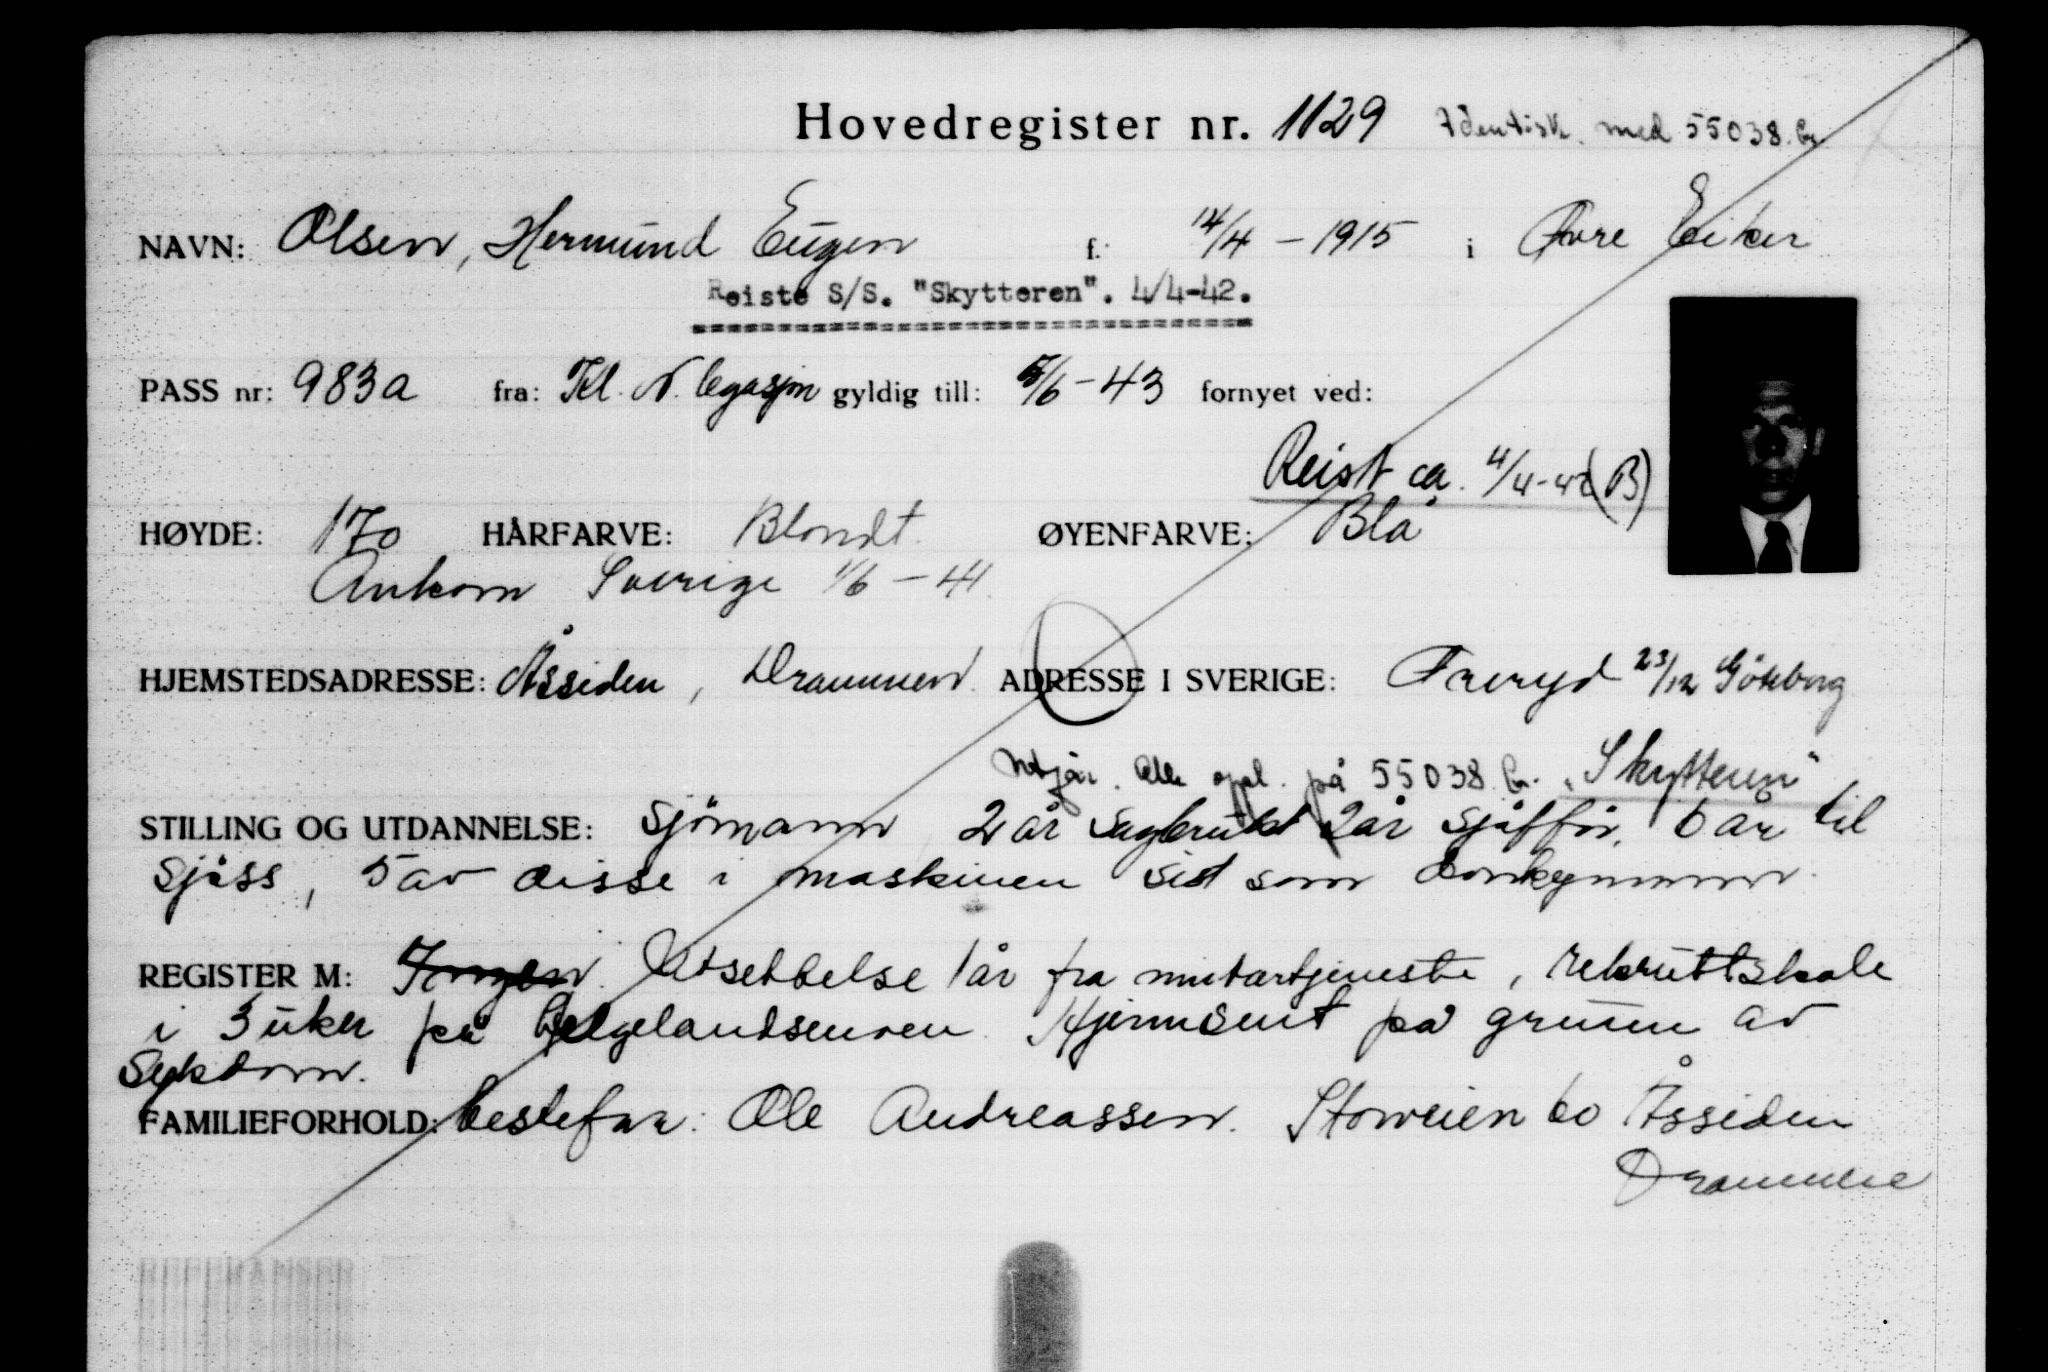 Hovedregister nr. 1129 Identisk. med 55038.
NAVN: Olsen, Hermund Eugen f: 14/4 - 1915 i Øvre Eiker
Reiste S/S. "Skytteren". 4/4-42.
PASS nr: 983a fra: Kl. N. legasjon gyldig till: 5/6 - 43 fornyet ved:
Reist ca. 4/4-42 (B)
HØYDE: 170 HÅRFARVE: Blondt. ØYENFARVE: Blå
Ankom Sverige 1/6 - 41.
HJEMSTEDSADRESSE: Åssiden, Drammen ADRESSE I SVERIGE: Freryd 23/12 Göteborg
Alle opl. på 55038. "Skytteren"
STILLING OG UTDANNELSE: Sjömann, 2 år sagbruk 2 år sjåffør, 6 år til
sjøss, 5 av disse i maskinen sist som donkymann.
REGISTER M: Ingen. Utsettelse 1 år fra militærtjeneste, rekruttskole
i 3 uker på Helgelandsmoen. Hjemsent på grunn av
Sykdom.
FAMILIEFORHOLD: bestefar: Ole Andreassen. Storveien 60 Åssiden
Drammen